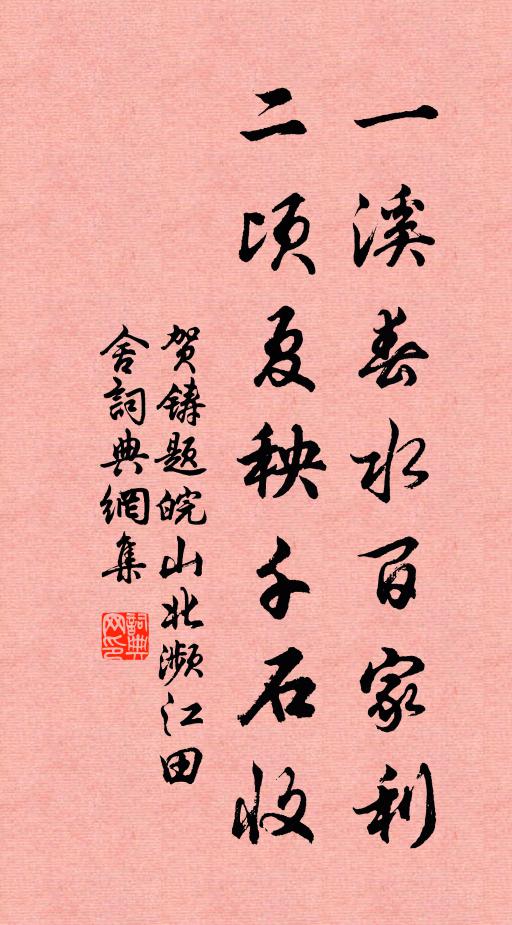 一溪春水百家利
二顷夏秧千石收
贺铸题皖山北濒江田
舍詞典網集
詞典网印